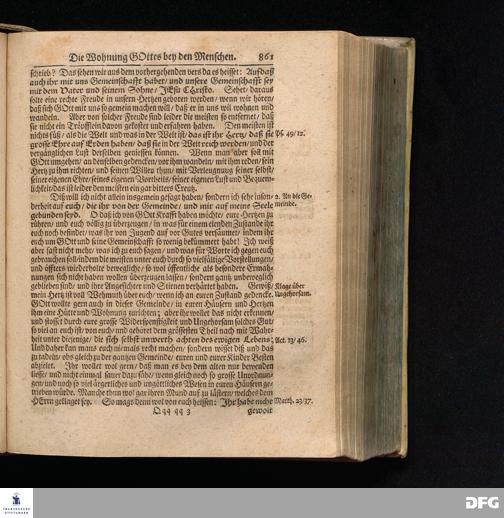 Die Wohnung GOttes bey den Menschen. 861
schrieb? Das sehen wir aus dem vorhergehenden vers da es heisset: Aufdaß
auch ihr mit uns Gemeinschafft habet/ und unsere Gemeinschafft sey
mit dem Vater und seinem Sohne/ JEsu CHristo. Sehet/ daraus
solte eine rechte Freude in unsern Hertzen geboren werden/ wenn wir hören/
daß sich GOtt mit uns so gemein machen will/ daß er in uns wil wohnen und
wandeln. Aber von solcher Freude sind die meisten so entfernet/ daß
sie nicht ein Tröpfflein davon gekostet und erfahren haben. Den meisten ist
nichts süß/ als die Welt und was in der Welt ist/ das ist ihr Hertz/ daß sie Ps. 49/12.
grosse Ehre auf Erden haben/ daß sie in der Welt reich werden/ und der
vergänglichen Lust derselben geniessen können. Wenn man aber soll mit
GOtt umgehen/ an denselben gedencken/ vor ihm wandeln/ mit ihm reden/ sein
Hertz zu ihm richten/ und seinen Willen thun/ mit Verleugnung seiner selbst/
seiner eigenen Ehre/ seines eigenen Vortheils/ seiner eigenen Lust und Bequem-
lichkeit/ das ist leider den meisten ein gar bitters Creutz.
Diß will ich nicht allein insgemein gesagt haben/ sondern ich sehe inson- 2. An die Ge-
derheit auf euch/ die ihr von der Gemeinde/ und mir auf meine Seele meinde.
gebunden seyd. O daß ich von GOtt Krafft haben möchte/ eure Hertzen zu
rühren/ und euch völlig zu überzeugen/ in was für einem elenden Zustande ihr
euch noch befindet/ was ihr von Jugend auf vor Gutes versäumet/ indem ihr
euch um GOtt und seine Gemeinschafft so wenig bekümmert habt! Ich weiß
aber fast nicht mehr/ was ich zu euch sagen/ und was für Worte ich gegen euch
gebrauchen soll/ indem die meisten unter euch durch so vielfältige Vorstellungen
und öffters wiederholte bewegliche/ so wol öffentliche als besondere Ermah-
nungen sich nicht haben wollen überzeugen lassen/ sondern gantz unbeweglich
geblieben sind/ und ihre Angesichter und Stirnen verhärtet haben. Gewiß/ Klage über
mein Hertz ist voll Wehmuth über euch/ wenn ich an euren Zustand gedencke. Ungehorsam.
GOtt wollte gern auch in dieser Gemeinde/ in euren Häusern und Hertzen
ihm eine Hütte und Wohnung zurichten; aber ihr wollet das nicht erkennen/
und stosset durch eure grosse Widerspenstigkeit und Ungehorsam solches Gut/
so viel an euch ist/ von euch/ und gehöret dem grössesten Theil nach mit Wahr-
heit unter diejenige/ die sich selbst unwerth achten des ewigen Lebens. Act. 13/46.
Und daher kan mans euch niemals recht machen/ sondern wisset diß und das
zu tadeln/ obs gleich zu der gantzen Gemeinde/ euren und eurer Kinder Besten
abzielet. Ihr wollet wol gern/ daß man es bey dem alten nur bewenden
liesse/ und nicht einmal sauer dazu sähe/ wenn gleich noch so grosse Unordnun-
gen/ und noch so viel ärgerliches und ungöttliches Wesen in euren Häusern ge-
trieben würde. Manche thun wol gar ihren Mund auf zu lästern/ welches dem
HErrn geklaget sey. So mags denn wol von euch heissen: Ihr habt nicht Matth. 23/37.
Qqqqq 3 gewolt
FRANCKESCHE
STIFTUNGEN
DFG